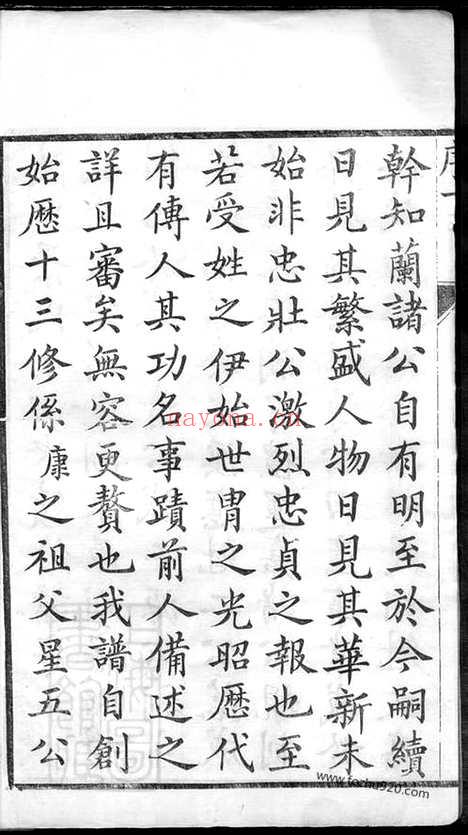 幹知蘭諸公自有明至於今嗣續
日見其繁盛人物日見其華新未
始非忠壯公激烈忠貞之報也至
若受姓之伊始世胄之光昭歷代
有傳人其功名事蹟前人備述之
詳且審矣無容更贅也我譜自創
始歷十三修係康之祖父星五公
nayona.cn